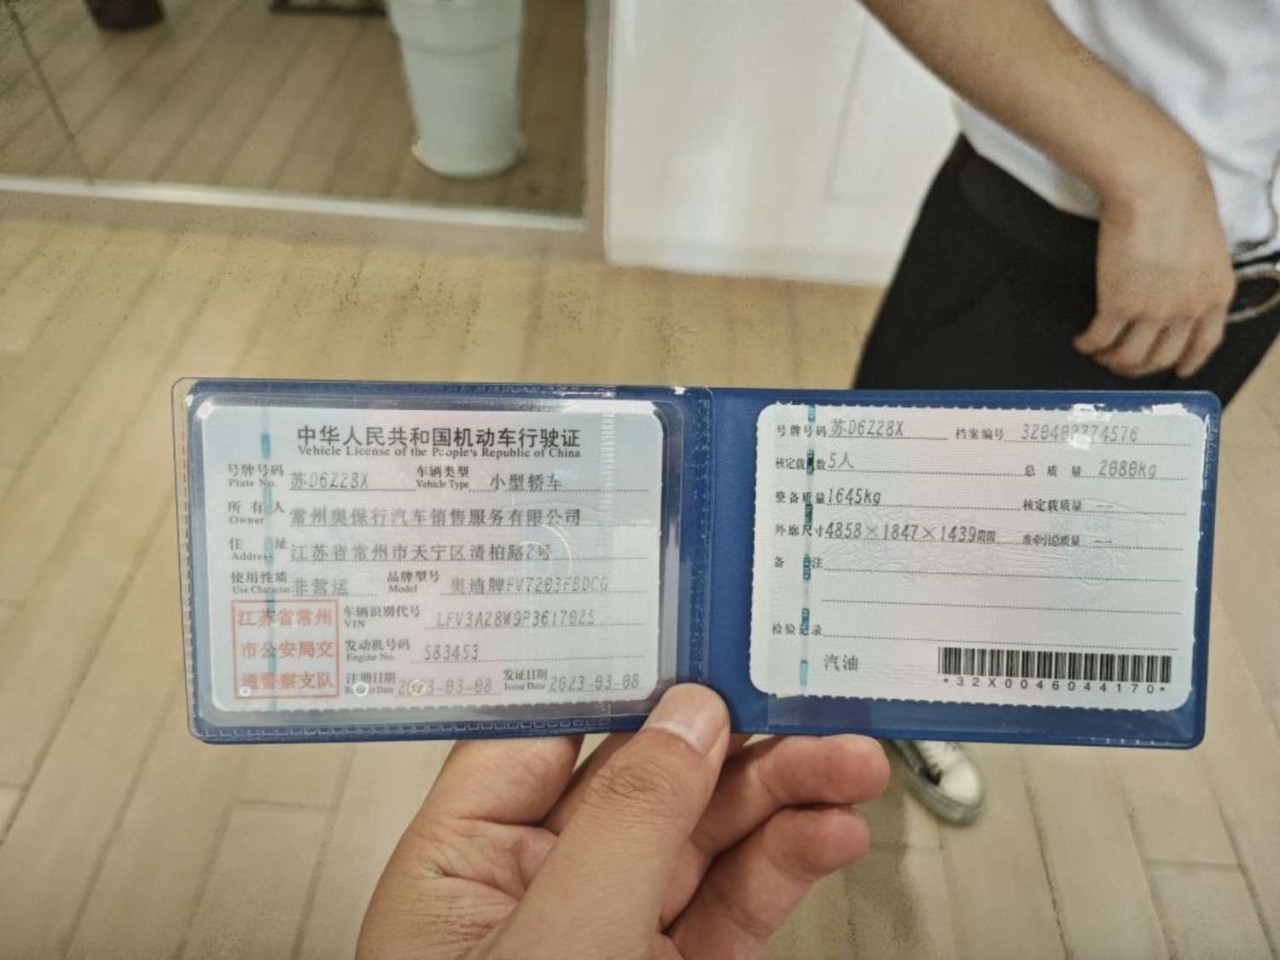 中华人民共和国机动车行驶证
Vehicle License of the People's Republic of China
号牌号码 苏D6Z28X 车辆类型 小型轿车
Plate No. Vehicle Type
所有人 常州奥保行汽车销售服务有限公司
Owner
住址 江苏省常州市天宁区清柏路2号
Address
使用性质 非营运 品牌型号 奥迪牌FV7203FBDCG
Use Character Model
江苏省常州
市公安局交
通警察支队
车辆识别代号 LFV3A28W9P3617025
VIN
发动机号码 583453
Engine No.
注册日期 2023-03-08 发证日期 2023-03-08
Register Date Issue Date
号牌号码 苏D6Z28X 档案编号
核定载人数 5人 总质量 2080kg
整备质量 1645kg 核定载质量 --
外廓尺寸 4858×1847×1439mm 准牵引总质量 --
备注
检验记录
汽油
*32X0046044170*